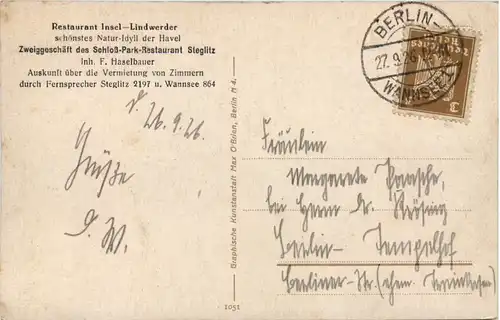 Restaurant Insel-Lindwerder
schönstes Natur-Idyll der Havel
Zweiggeschäft des Schloß-Park-Restaurant Steglitz
Inh. F. Haselbauer
Auskunft über die Vermietung von Zimmern
durch Fernsprecher Steglitz 2197 u. Wannsee 864
d. 26.9.26.
Grüße
D. W.
Graphische Kunstanstalt Max O'Brien, Berlin N 4.
1051
BERLIN-
27.9.26
WANNSEE
Fräulein
Margarete Paasche,
bei Herrn Dr. Kösing
Berlin- Tempelhof
Berliner-Str. (ehem.